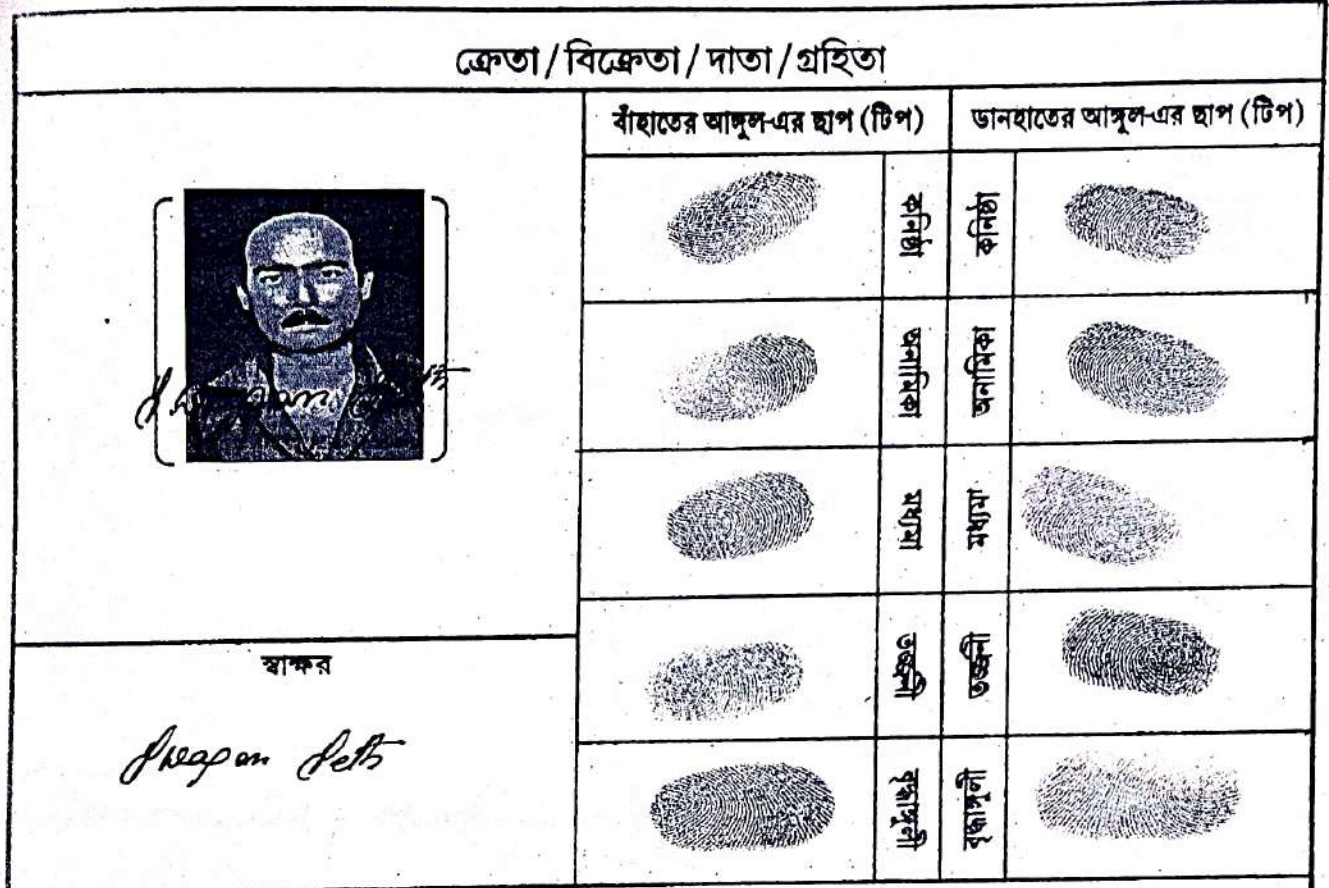 ক্রেতা/বিক্রেতা/দাতা/গ্রহিতা
বাঁহাতের আঙ্গুল-এর ছাপ (টিপ)
ডানহাতের আঙ্গুল-এর ছাপ (টিপ)
কনিষ্ঠা
কনিষ্ঠা
অনামিকা
অনামিকা
মধ্যমা
মধ্যমা
তর্জ্জনী
তর্জ্জনী
বৃদ্ধাঙ্গুলী
বৃদ্ধাঙ্গুলী
স্বাক্ষর
Swapan